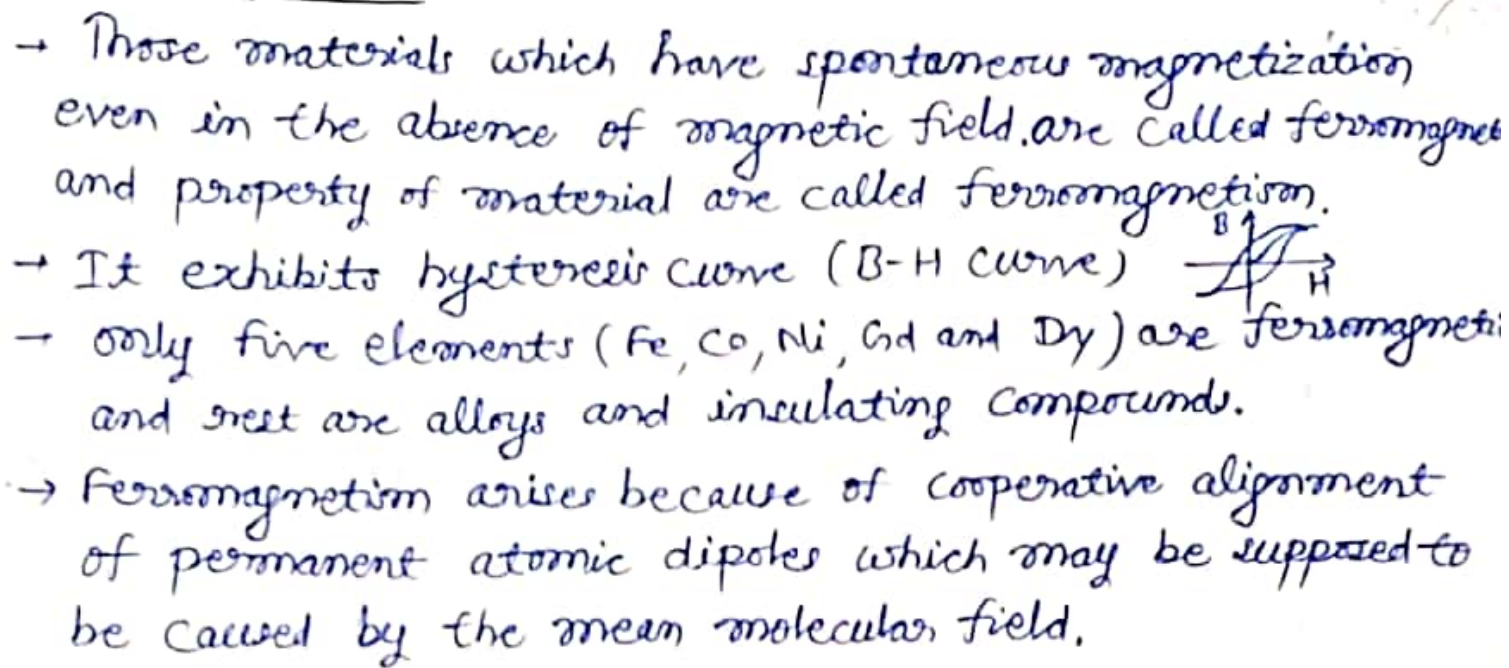 → Those materials which have spontaneous magnetization
even in the absence of magnetic field. are called ferromagnet
and property of material are called ferromagnetism.
→ It exhibits hysteresis curve (B-H curve) B H
→ only five elements (Fe, Co, Ni, Gd and Dy) are ferromagneti
and rest are alloys and insulating compounds.
→ Ferromagnetism arises because of cooperative alignment
of permanent atomic dipoles which may be supposed to
be caused by the mean molecular field.